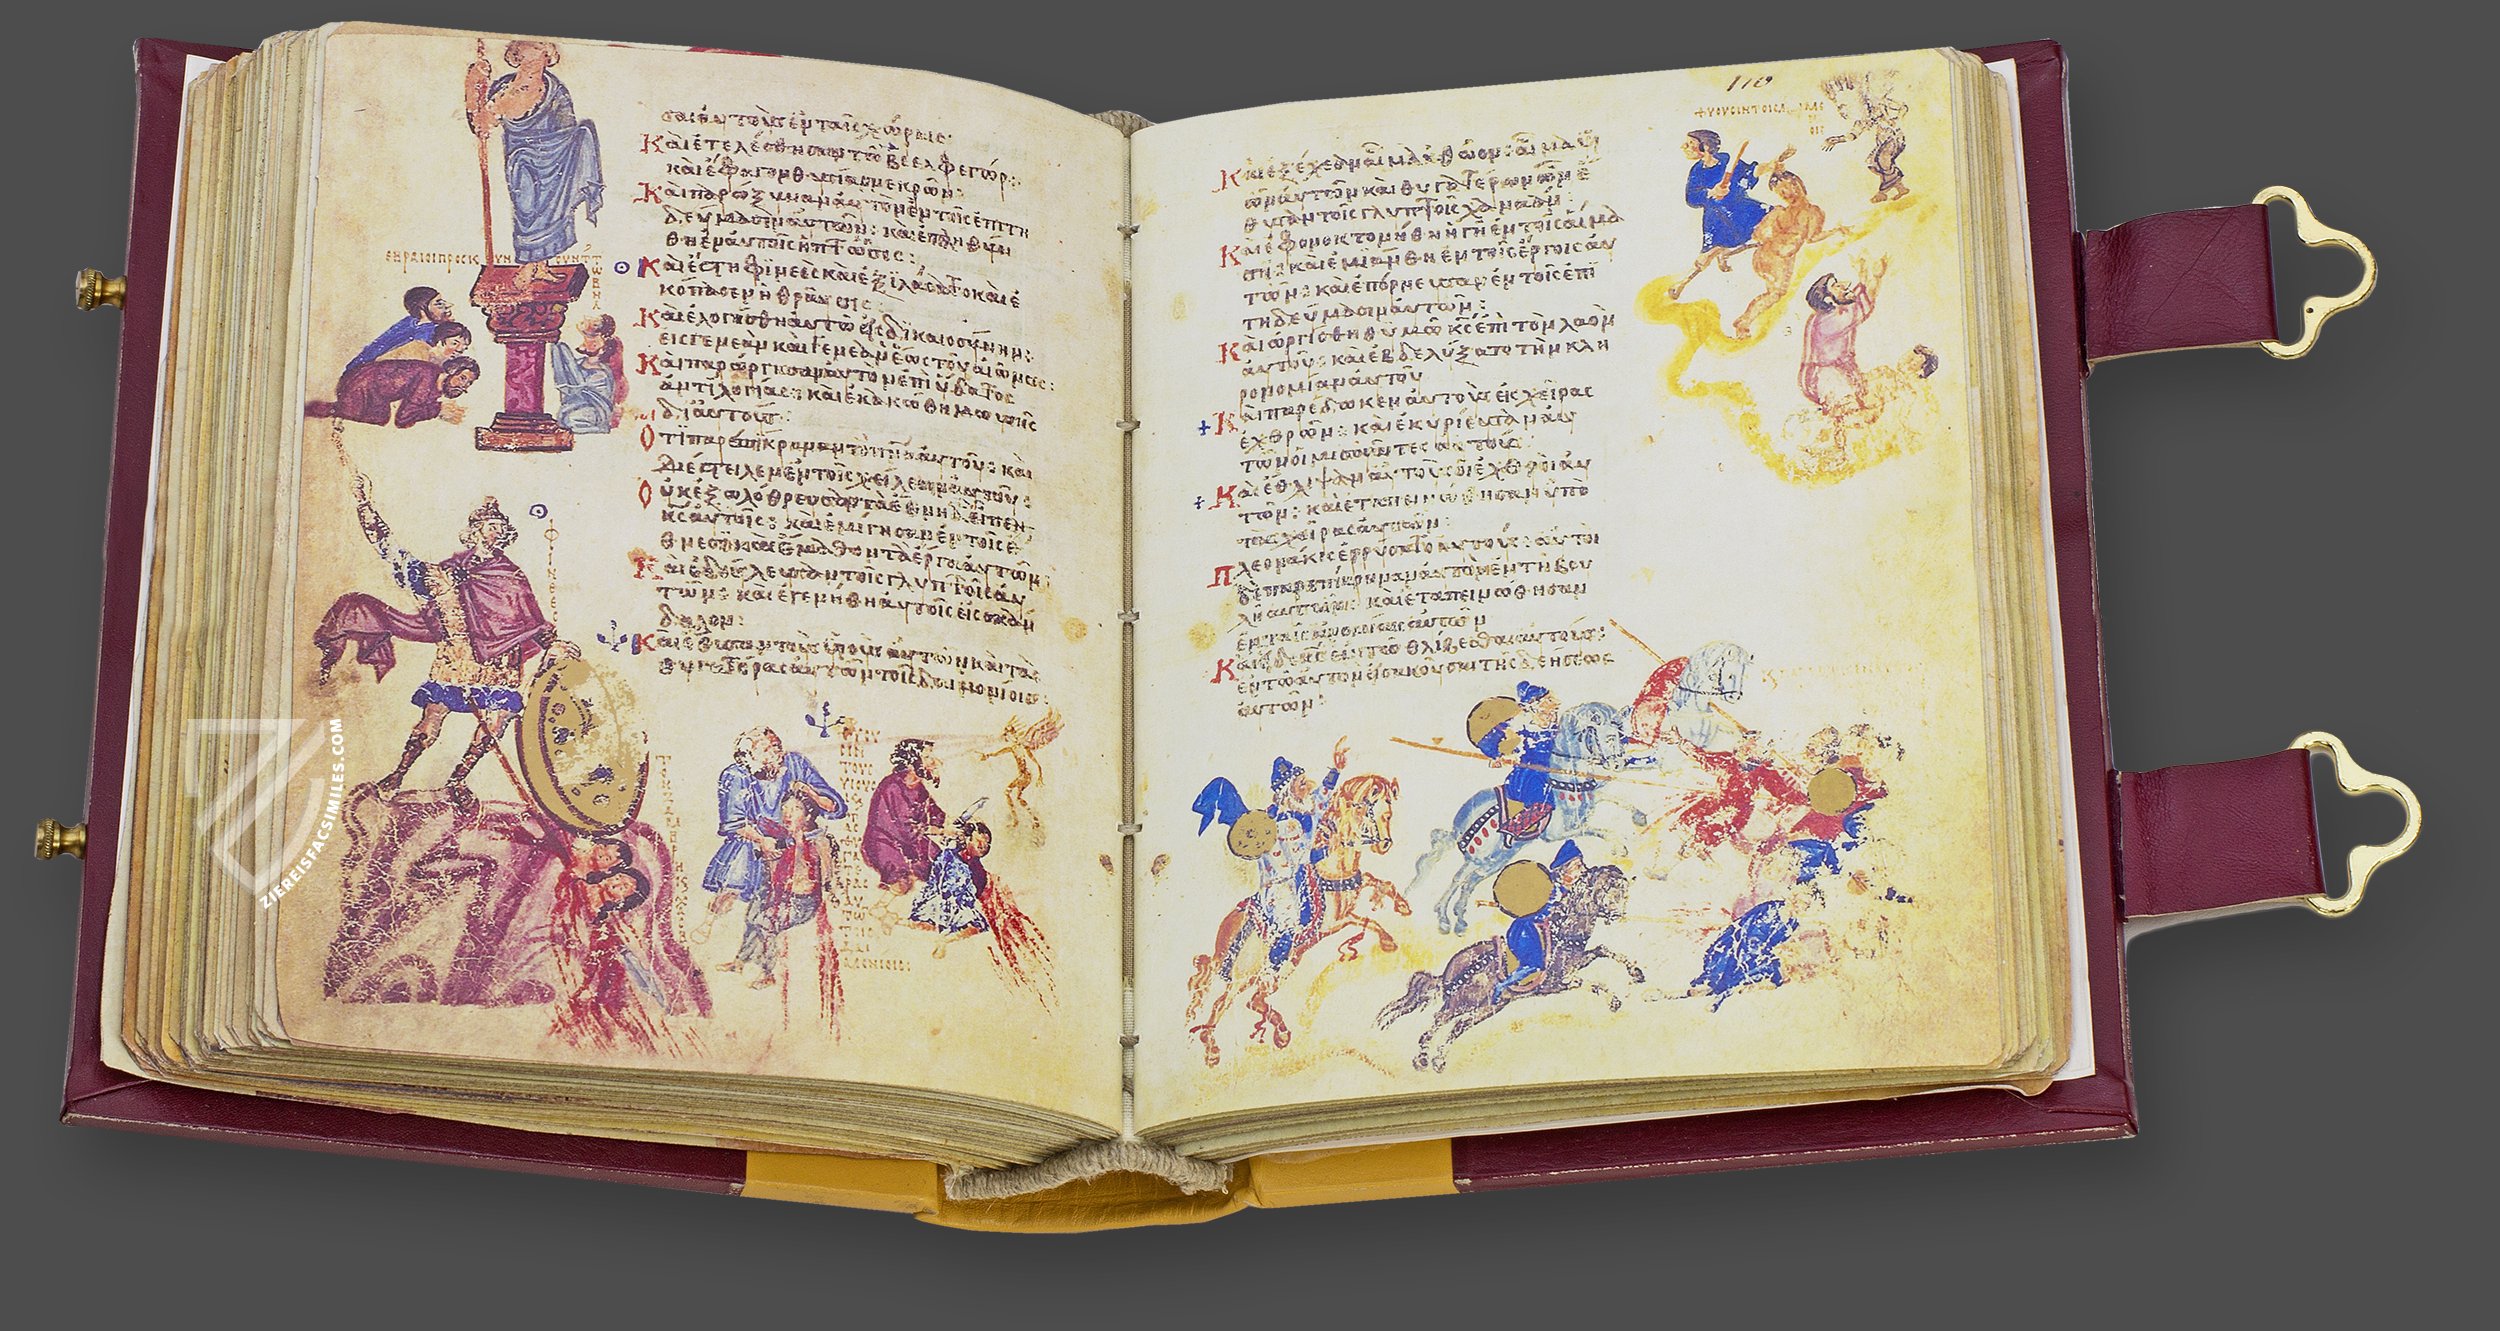 σαι αὐτοὺς ἐν ταῖς χώραις·
Καὶ ἐτελέσθησαν τῶ Βεελφεγώρ:
καὶ ἔφαγον θυσίας νεκρῶν:
Καὶ παρώξυναν αὐτὸν ἐν τοῖς ἐπιτη
δεύμασιν αὐτῶν: καὶ ἐπληθύν
θη ἐν αὐτοῖς ἡ πτῶσις:
Καὶ ἔστη Φινεὲς καὶ ἐξιλάσατο καὶ ἐ
κόπασεν ἡ θραῦσις:
Καὶ ἐλογίσθη αὐτῶ εἰς δικαιοσύνην:
εἰς γενεὰν καὶ γενεὰν ἕως τοῦ αἰῶνος:
Καὶ παρώργισαν αὐτὸν ἐπὶ ὕδατος
ἀντιλογίας: καὶ ἐκακώθη Μωυσῆς
δι' αὐτούς:
Ὅτι παρεπίκραναν τὸ πνα αὐτοῦ: καὶ
διέστειλεν ἐν τοῖς χείλεσιν αὐτοῦ:
Οὐκ ἐξωλόθρευσαν τὰ ἔθνη ἃ εἶπεν
κς αὐτοῖς: καὶ ἐμίγησαν ἐν τοῖς ἔ
θνεσιν καὶ ἔμαθον τὰ ἔργα αὐτῶν:
Καὶ ἐδούλευσαν τοῖς γλυπτοῖς αὐ
τῶν: καὶ ἐγενήθη αὐτοῖς εἰς σκάν
δαλον:
Καὶ ἔθυσαν τοὺς υἱοὺς αὐτῶν καὶ τὰς
θυγατέρας αὐτῶν τοῖς δαιμονίοις:
ZIEREISFACSIMILES.COM
110
Καὶ ἐξέχεαν αἷμα ἀθῶον: αἷμα υἱ
ῶν αὐτῶν καὶ θυγατέρων ὧν ἔ
θυσαν τοῖς γλυπτοῖς Χαναάν:
Καὶ ἐφονοκτονήθη ἡ γῆ ἐν τοῖς αἵμα
σιν: καὶ ἐμιάνθη ἐν τοῖς ἔργοις αὐ
τῶν: καὶ ἐπόρνευσαν ἐν τοῖς ἐπι
τηδεύμασιν αὐτῶν:
Καὶ ὠργίσθη θυμῶ κς ἐπὶ τὸν λαὸν
αὐτοῦ: καὶ ἐβδελύξατο τὴν κλη
ρονομίαν αὐτοῦ
Καὶ παρέδωκεν αὐτοὺς εἰς χεῖρας
ἐχθρῶν: καὶ ἐκυρίευσαν αὐ
τῶν οἱ μισοῦντες αὐτούς:
Καὶ ἔθλιψαν αὐτοὺς οἱ ἐχθροὶ αὐ
τῶν: καὶ ἐταπεινώθησαν ὑπὸ
τὰς χεῖρας αὐτῶν:
Πλεονάκις ἐρρύσατο αὐτούς: αὐτοὶ
δὲ παρεπίκραναν αὐτὸν ἐν τῆ βου
λῆ αὐτῶν: καὶ ἐταπεινώθησαν
ἐν ταῖς ἀνομίαις αὐτῶν
Καὶ εἶδεν ἐν τῶ θλίβεσθαι αὐτούς:
ἐν τῶ αὐτὸν εἰσακοῦσαι τῆς δεήσεως
αὐτῶν: